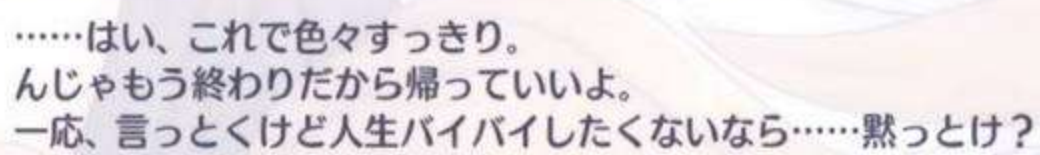 ……はい、これで色々すっきり。
んじゃもう終わりだから帰っていいよ。
一応、言っとくけど人生バイバイしたくないなら……黙っとけ？